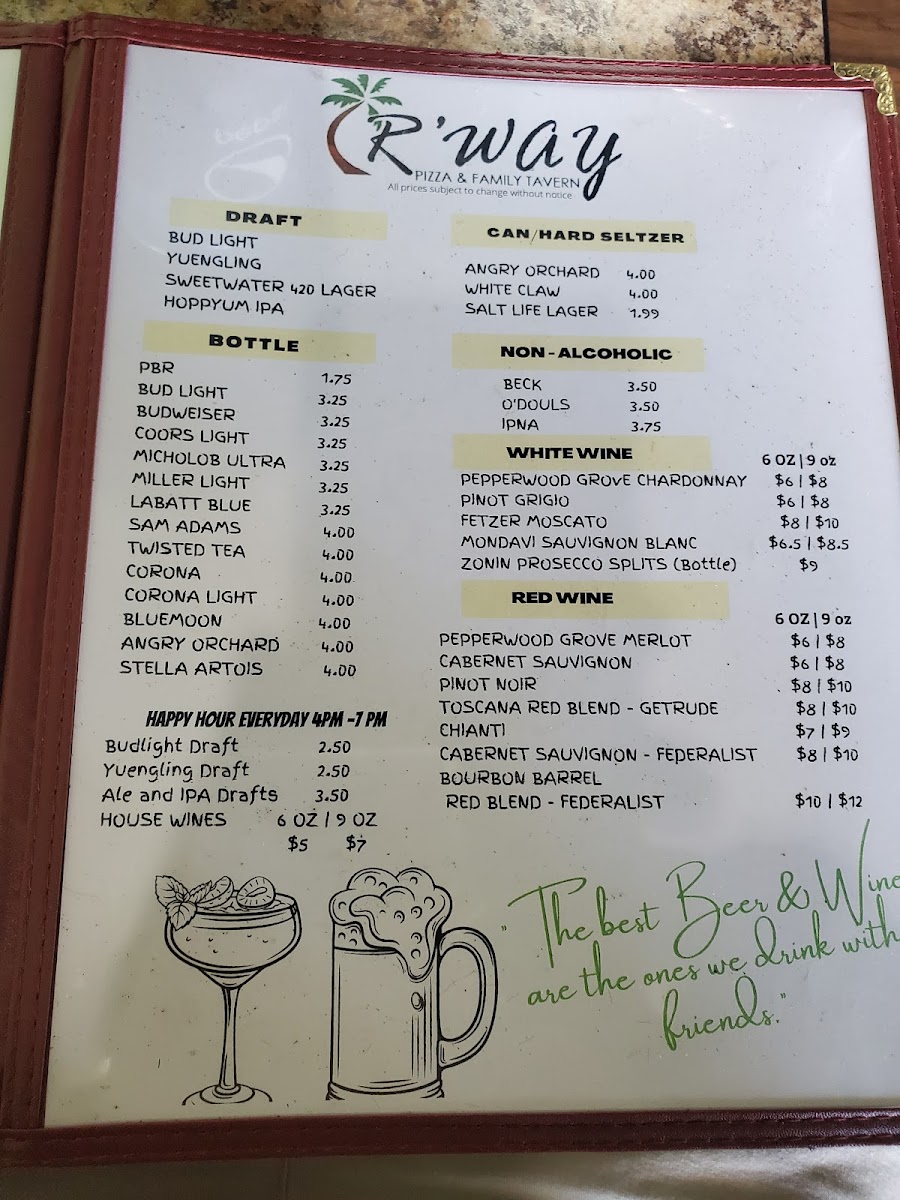 R'WAY
PIZZA & FAMILY TAVERN
All prices subject to change without notice
DRAFT
BUD LIGHT
YUENGLING
SWEETWATER 420 LAGER
HOPPYUM IPA
BOTTLE
PBR 1.75
BUD LIGHT 3.25
BUDWEISER 3.25
COORS LIGHT 3.25
MICHOLOB ULTRA 3.25
MILLER LIGHT 3.25
LABATT BLUE 3.25
SAM ADAMS 4.00
TWISTED TEA 4.00
CORONA 4.00
CORONA LIGHT 4.00
BLUEMOON 4.00
ANGRY ORCHARD 4.00
STELLA ARTOIS 4.00
HAPPY HOUR EVERYDAY 4PM -7 PM
Budlight Draft 2.50
Yuengling Draft 2.50
Ale and IPA Drafts 3.50
HOUSE WINES 6 OZ | 9 OZ
$5 $7
CAN/HARD SELTZER
ANGRY ORCHARD 4.00
WHITE CLAW 4.00
SALT LIFE LAGER 1.99
NON-ALCOHOLIC
BECK 3.50
O'DOULS 3.50
IPNA 3.75
WHITE WINE 6 OZ | 9 oz
PEPPERWOOD GROVE CHARDONNAY $6 | $8
PINOT GRIGIO $6 | $8
FETZER MOSCATO $8 | $10
MONDAVI SAUVIGNON BLANC $6.5 | $8.5
ZONIN PROSECCO SPLITS (Bottle) $9
RED WINE
6 OZ | 9 oz
PEPPERWOOD GROVE MERLOT $6 | $8
CABERNET SAUVIGNON $6 | $8
PINOT NOIR $8 | $10
TOSCANA RED BLEND - GETRUDE $8 | $10
CHIANTI $7 | $9
CABERNET SAUVIGNON - FEDERALIST $8 | $10
BOURBON BARREL
RED BLEND - FEDERALIST $10 | $12
"The best Beer & Wine
are the ones we drink with
friends."